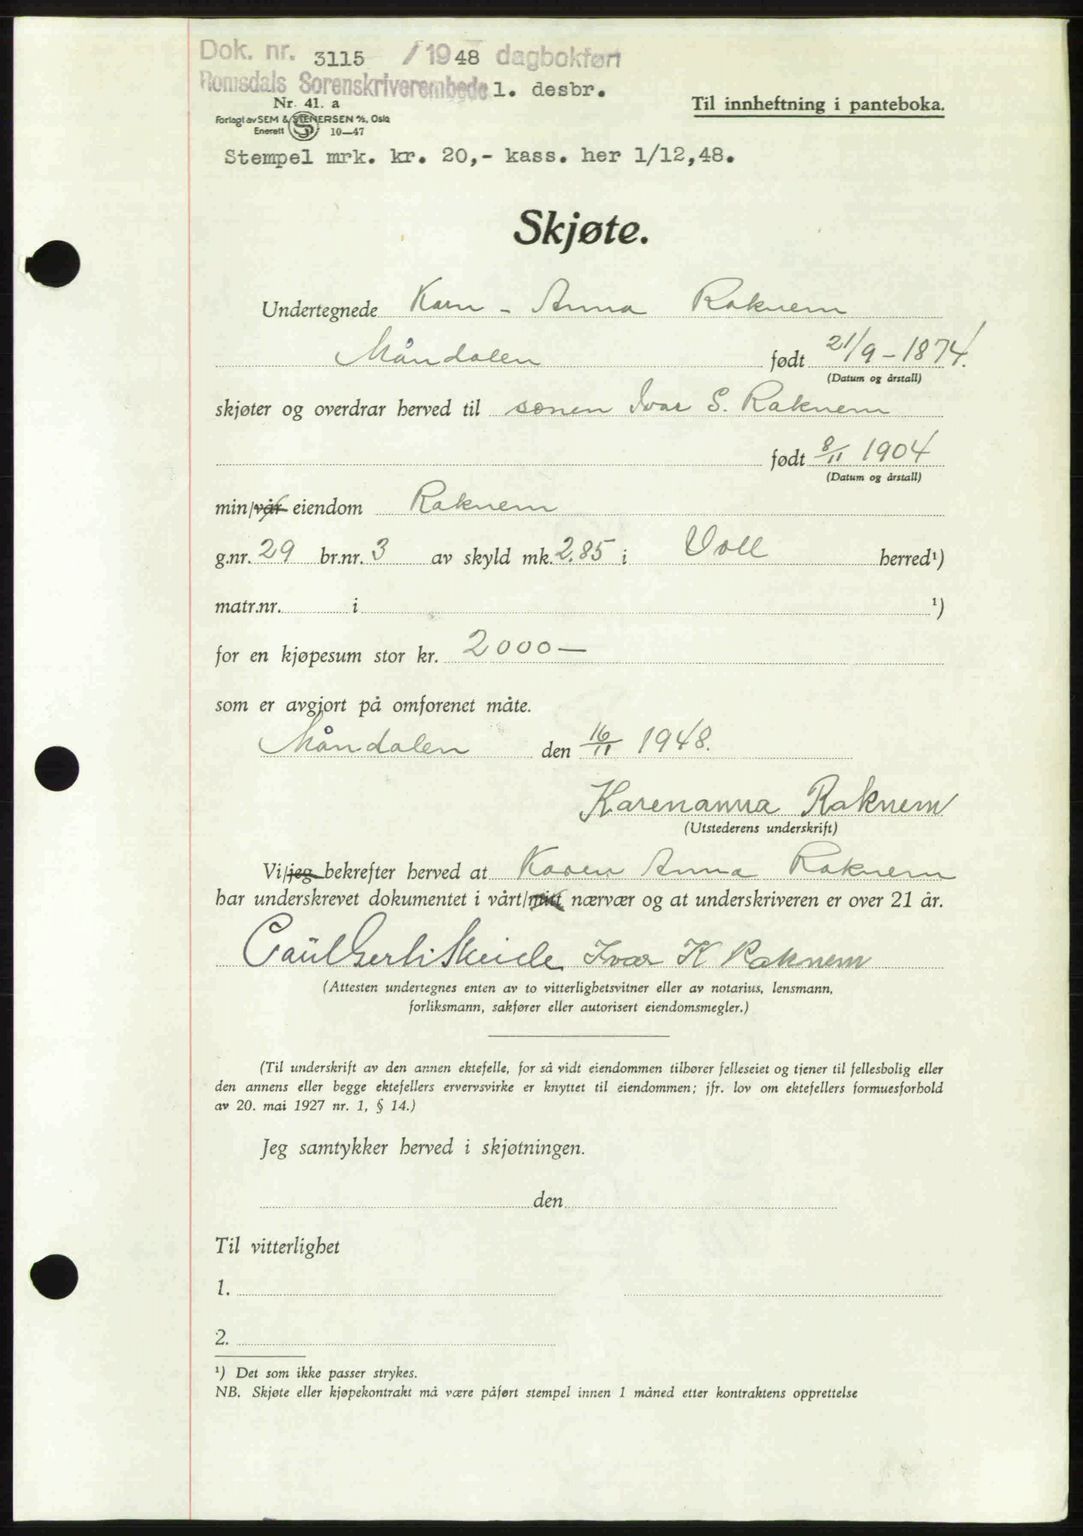 Dok. nr. 3115 /1948 dagbokført
Romsdals Sorenskriverembede 1. desbr.
Nr. 41. a
Til innheftning i panteboka.
Forlagt av SEM & STENERSEN A/S, Oslo
Enerett S 10—47
Stempel mrk. kr. 20,- kass. her 1/12,48.
Skjøte.
Undertegnede Karn - Anna Raknem
Måndalen født 21/9-1874.
(Datum og årstall)
skjøter og overdrar herved til sønen Ivar S. Raknem
født 8/11 1904
(Datum og årstall)
min/vår eiendom Raknem
g.nr. 29 br.nr. 3 av skyld mk. 2.85 i Voll herred¹)
matr.nr. i ¹)
for en kjøpesum stor kr. 2000—
som er avgjort på omforenet måte.
Måndalen den 16/11 1948.
Karenanna Raknem
(Utstederens underskrift)
Vi/jeg bekrefter herved at Karen Anna Raknem
har underskrevet dokumentet i vårt/mitt nærvær og at underskriveren er over 21 år.
Skeide Ivar K Raknem
(Attesten undertegnes enten av to vitterlighetsvitner eller av notarius, lensmann,
forliksmann, sakfører eller autorisert eiendomsmegler.)
(Til underskrift av den annen ektefelle, for så vidt eiendommen tilhører felleseiet og tjener til fellesbolig eller
den annens eller begge ektefellers ervervsvirke er knyttet til eiendommen; jfr. lov om ektefellers formuesforhold
av 20. mai 1927 nr. 1, § 14.)
Jeg samtykker herved i skjøtningen.
den
Til vitterlighet
1.
2.
¹) Det som ikke passer strykes.
NB. Skjøte eller kjøpekontrakt må være påført stempel innen 1 måned etter kontraktens opprettelse